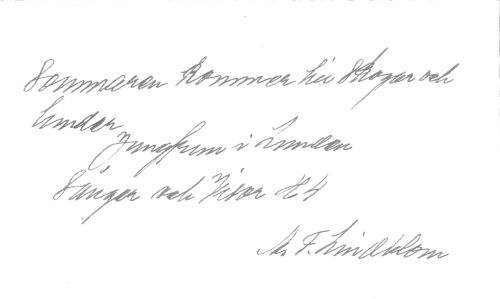 Sommaren kommer hu Skogar och
lundar
Jungfrun i Lunden
Sånger och Visor H 4
Av F. Lindblom